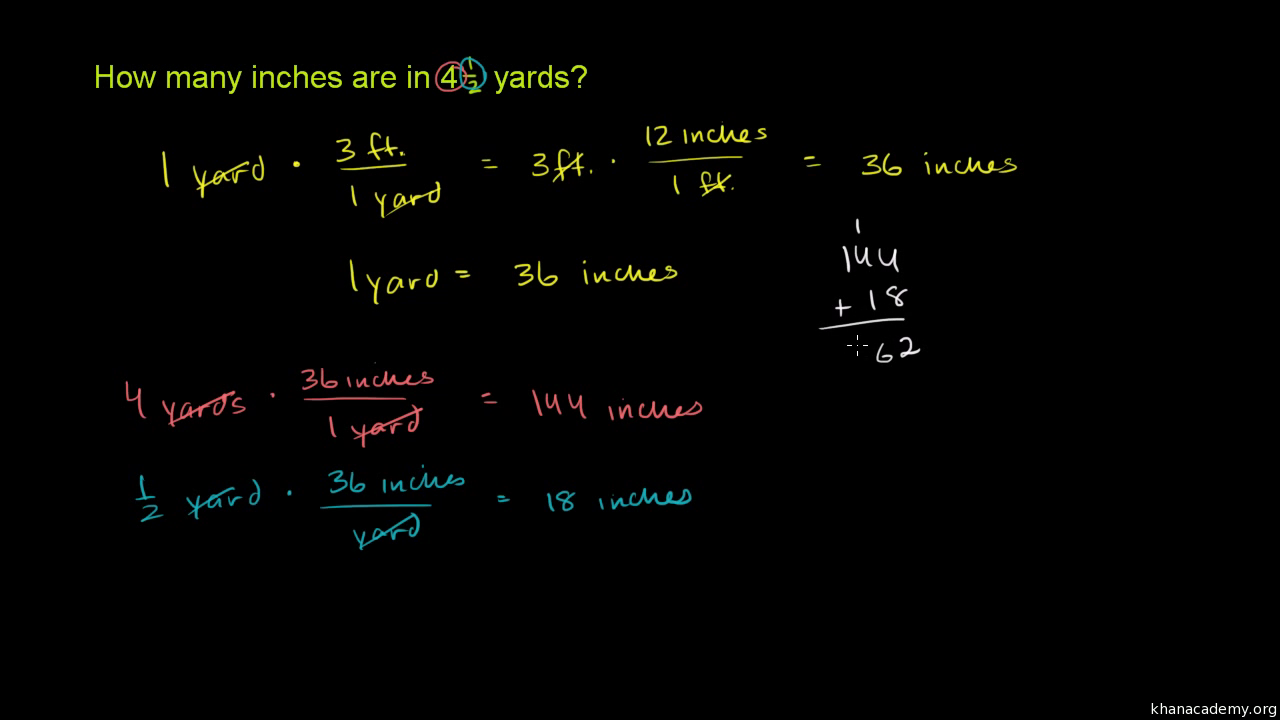 How many inches are in 4 1/2 yards?
1 yard · 3 ft. / 1 yard = 3 ft. · 12 inches / 1 ft. = 36 inches
1 yard = 36 inches
1
144
+ 18
62
4 yards · 36 inches / 1 yard = 144 inches
1/2 yard · 36 inches / yard = 18 inches
khanacademy.org